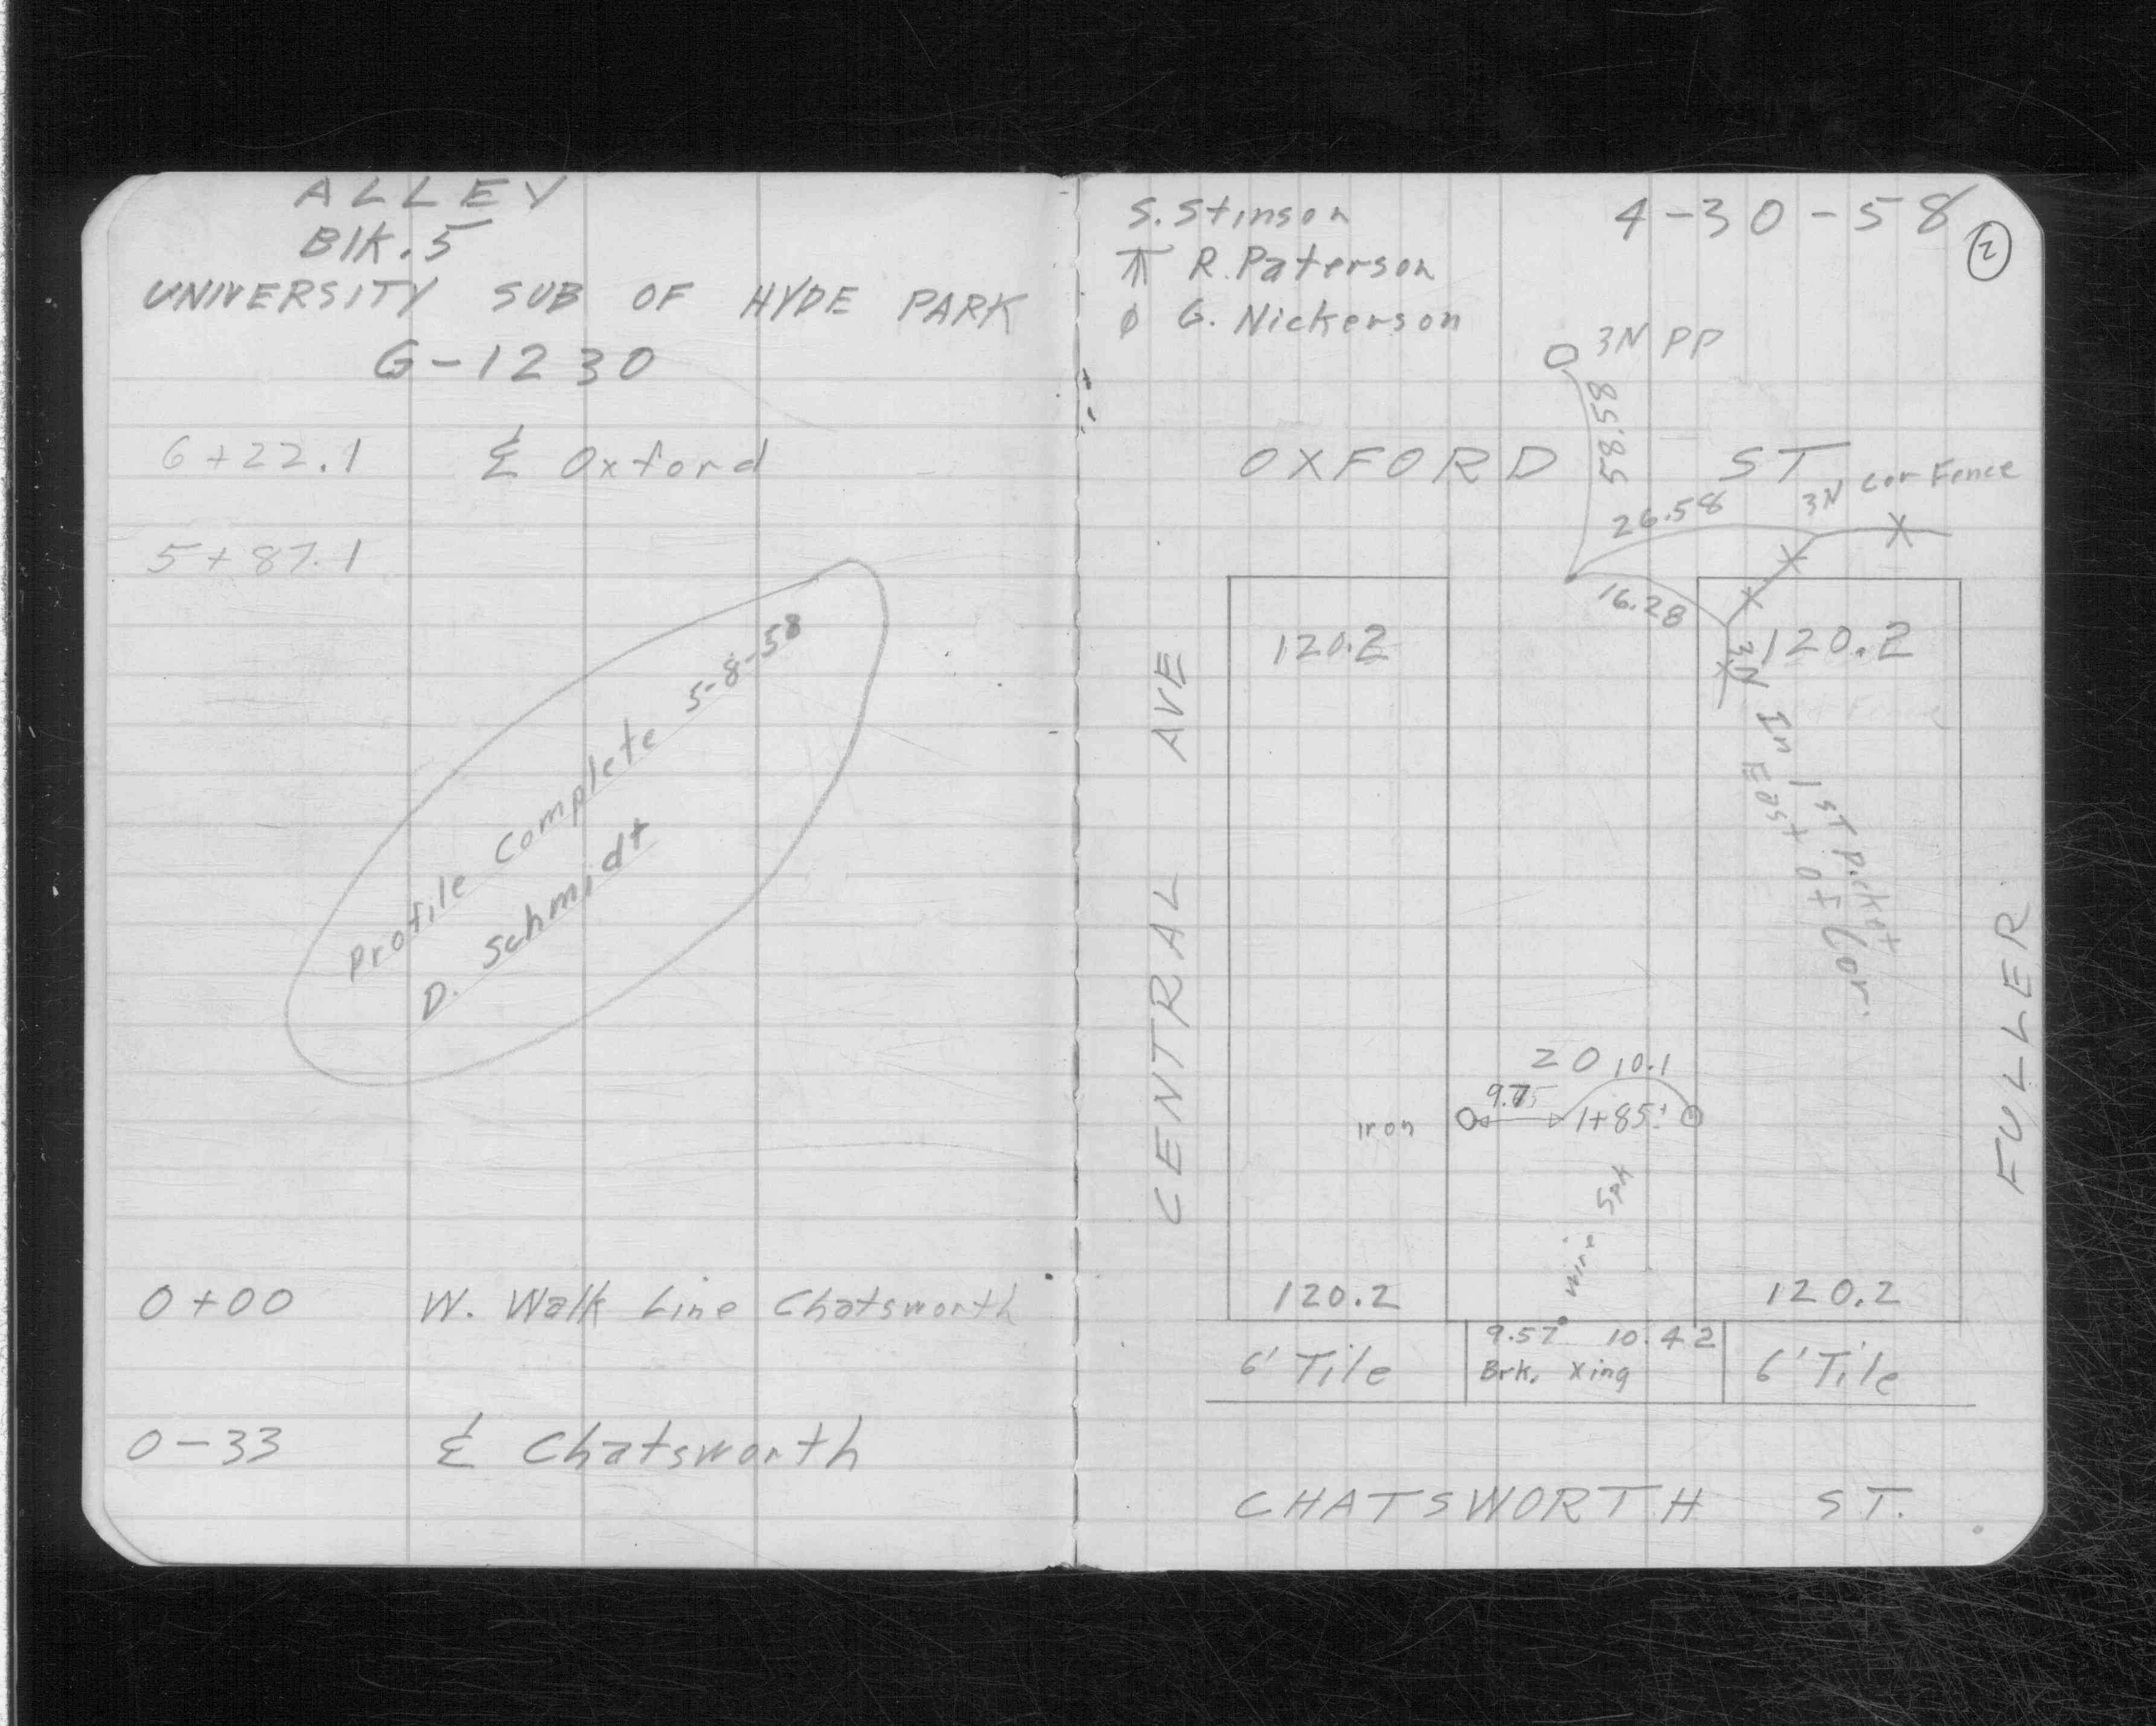 ALLEY
Blk. 5
UNIVERSITY SUB OF HYDE PARK
G-1230
6+22.1 ℄ Oxford
5+87.1
Profile Complete 5-8-58
D. Schmidt
0+00 W. Walk Line Chatsworth
0-33 ℄ Chatsworth
S. Stinson
4-30-58
2
⊼ R. Paterson
φ G. Nickerson
3N PP
58.58
OXFORD ST
3N Cor Fence
26.58
16.28
120.2
120.2
3N In 1st Picket
East of Cor.
CENTRAL AVE
FULLER
20
10.1
Iron
1+85±
Wire Spk
120.2
120.2
9.57 10.42
6' Tile
Brk. Xing
6' Tile
CHATSWORTH ST.